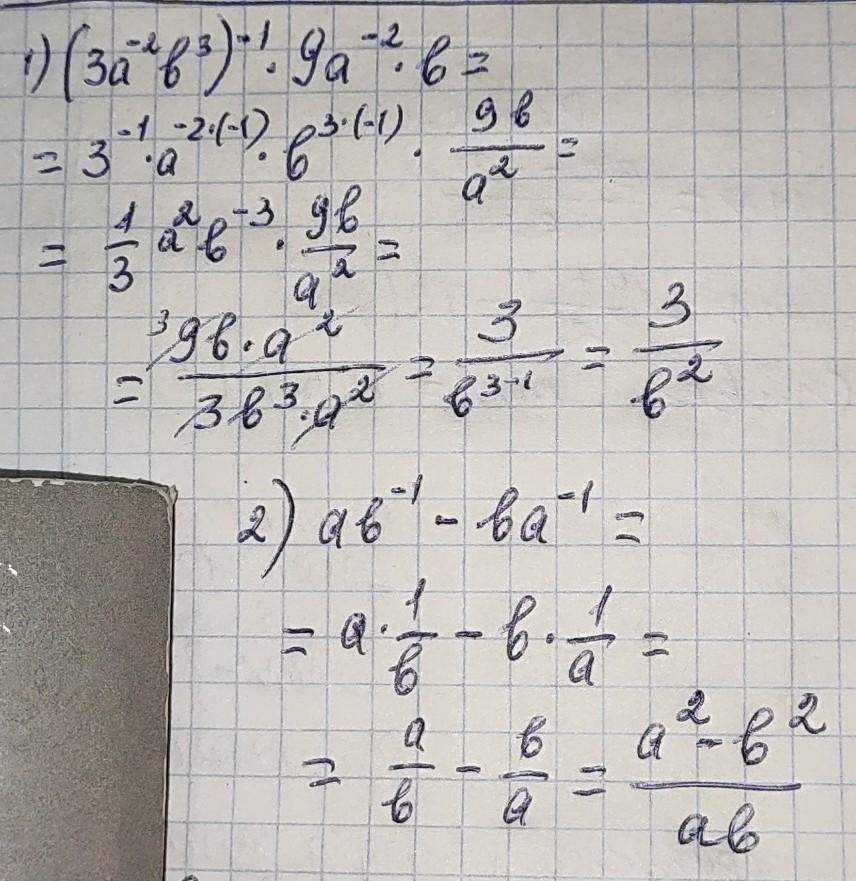 1) (3a⁻²b³)⁻¹ · 9a⁻² · b =
= 3⁻¹ · a⁻²·⁽⁻¹⁾ · b³·⁽⁻¹⁾ · 9b/a² =
= 1/3 a² b⁻³ · 9b/a² =
= ³9b · a² / 3b³ · a² = 3/b³⁻¹ = 3/b²
2) ab⁻¹ - ba⁻¹ =
= a · 1/b - b · 1/a =
= a/b - b/a = a² - b² / ab